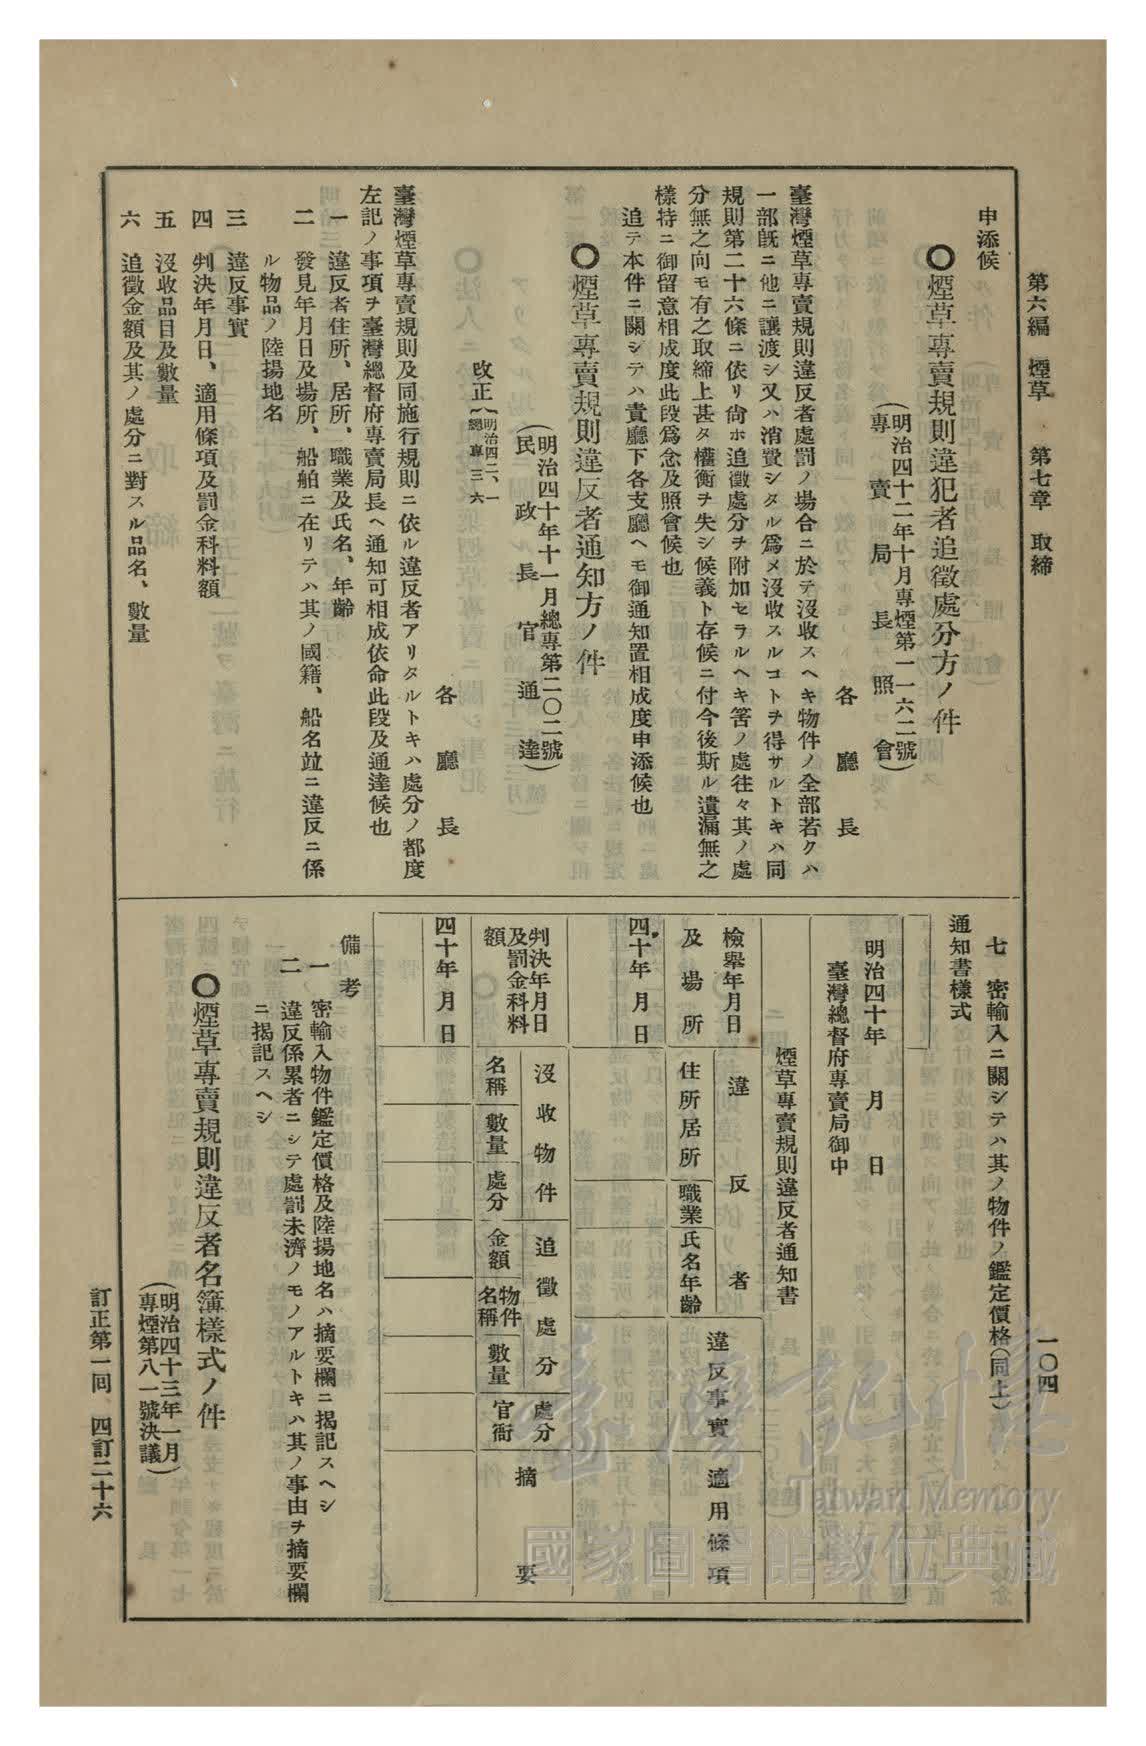 第六編　煙草　　第七章　取締
一〇四
申添候
〇煙草專賣規則違犯者追徵處分方ノ件
(明治四十二年十月專煙第一一六二號
專賣局長照會)
各廳長
臺灣煙草專賣規則違反者處罰ノ場合ニ於テ沒收スヘキ物件ノ全部若クハ
一部旣ニ他ニ讓渡シ又ハ消費シタル爲メ沒收スルコトヲ得サルトキハ同
規則第二十六條ニ依リ尙ホ追徵處分ヲ附加セラルヘキ筈ノ處往々其ノ處
分無之向モ有之取締上甚タ權衡ヲ失シ候義ト存候ニ付今後斯ル遺漏無之
樣特ニ御留意相成度此段爲念及照會候也
追テ本件ニ關シテハ貴廳下各支廳ヘモ御通知置相成度申添候也
〇煙草專賣規則違反者通知方ノ件
(明治四十年十一月總專第二〇二號
民政長官通達)
改正(明治四二、一
總專三六
各廳長
臺灣煙草專賣規則及同施行規則ニ依ル違反者アリタルトキハ處分ノ都度
左記ノ事項ヲ臺灣總督府專賣局長ヘ通知可相成依命此段及通達候也
一　違反者住所、居所、職業及氏名、年齡
二　發見年月日及場所、船舶ニ在リテハ其ノ國籍、船名竝ニ違反ニ係
ル物品ノ陸揚地名
三　違反事實
四　判決年月日、適用條項及罰金科料額
五　沒收品目及數量
六　追徵金額及其ノ處分ニ對スル品名、數量
七　密輸入ニ關シテハ其ノ物件ノ鑑定價格(同上)
通知書樣式
明治四十年　　月　　日
臺灣總督府專賣局御中
煙草專賣規則違反者通知書
檢擧年月日
及場所
違反者
住所居所
職業
氏名年齡
違反事實
適用條項
四十年　月　日
判決年月日
及罰金科料
額
沒收物件
名稱
數量
處分
追徵處分
金額
物件
名稱
數量
處分
官衙
摘要
四十年　月　日
備考
一　密輸入物件鑑定價格及陸揚地名ハ摘要欄ニ揭記スヘシ
二　違反係累者ニシテ處罰未濟ノモノアルトキハ其ノ事由ヲ摘要欄
ニ揭記スヘシ
〇煙草專賣規則違反者名簿樣式ノ件
(明治四十三年一月
專煙第八一號決議)
訂正第一回　四訂二十六
臺灣記憶
Taiwan Memory
國家圖書館數位典藏